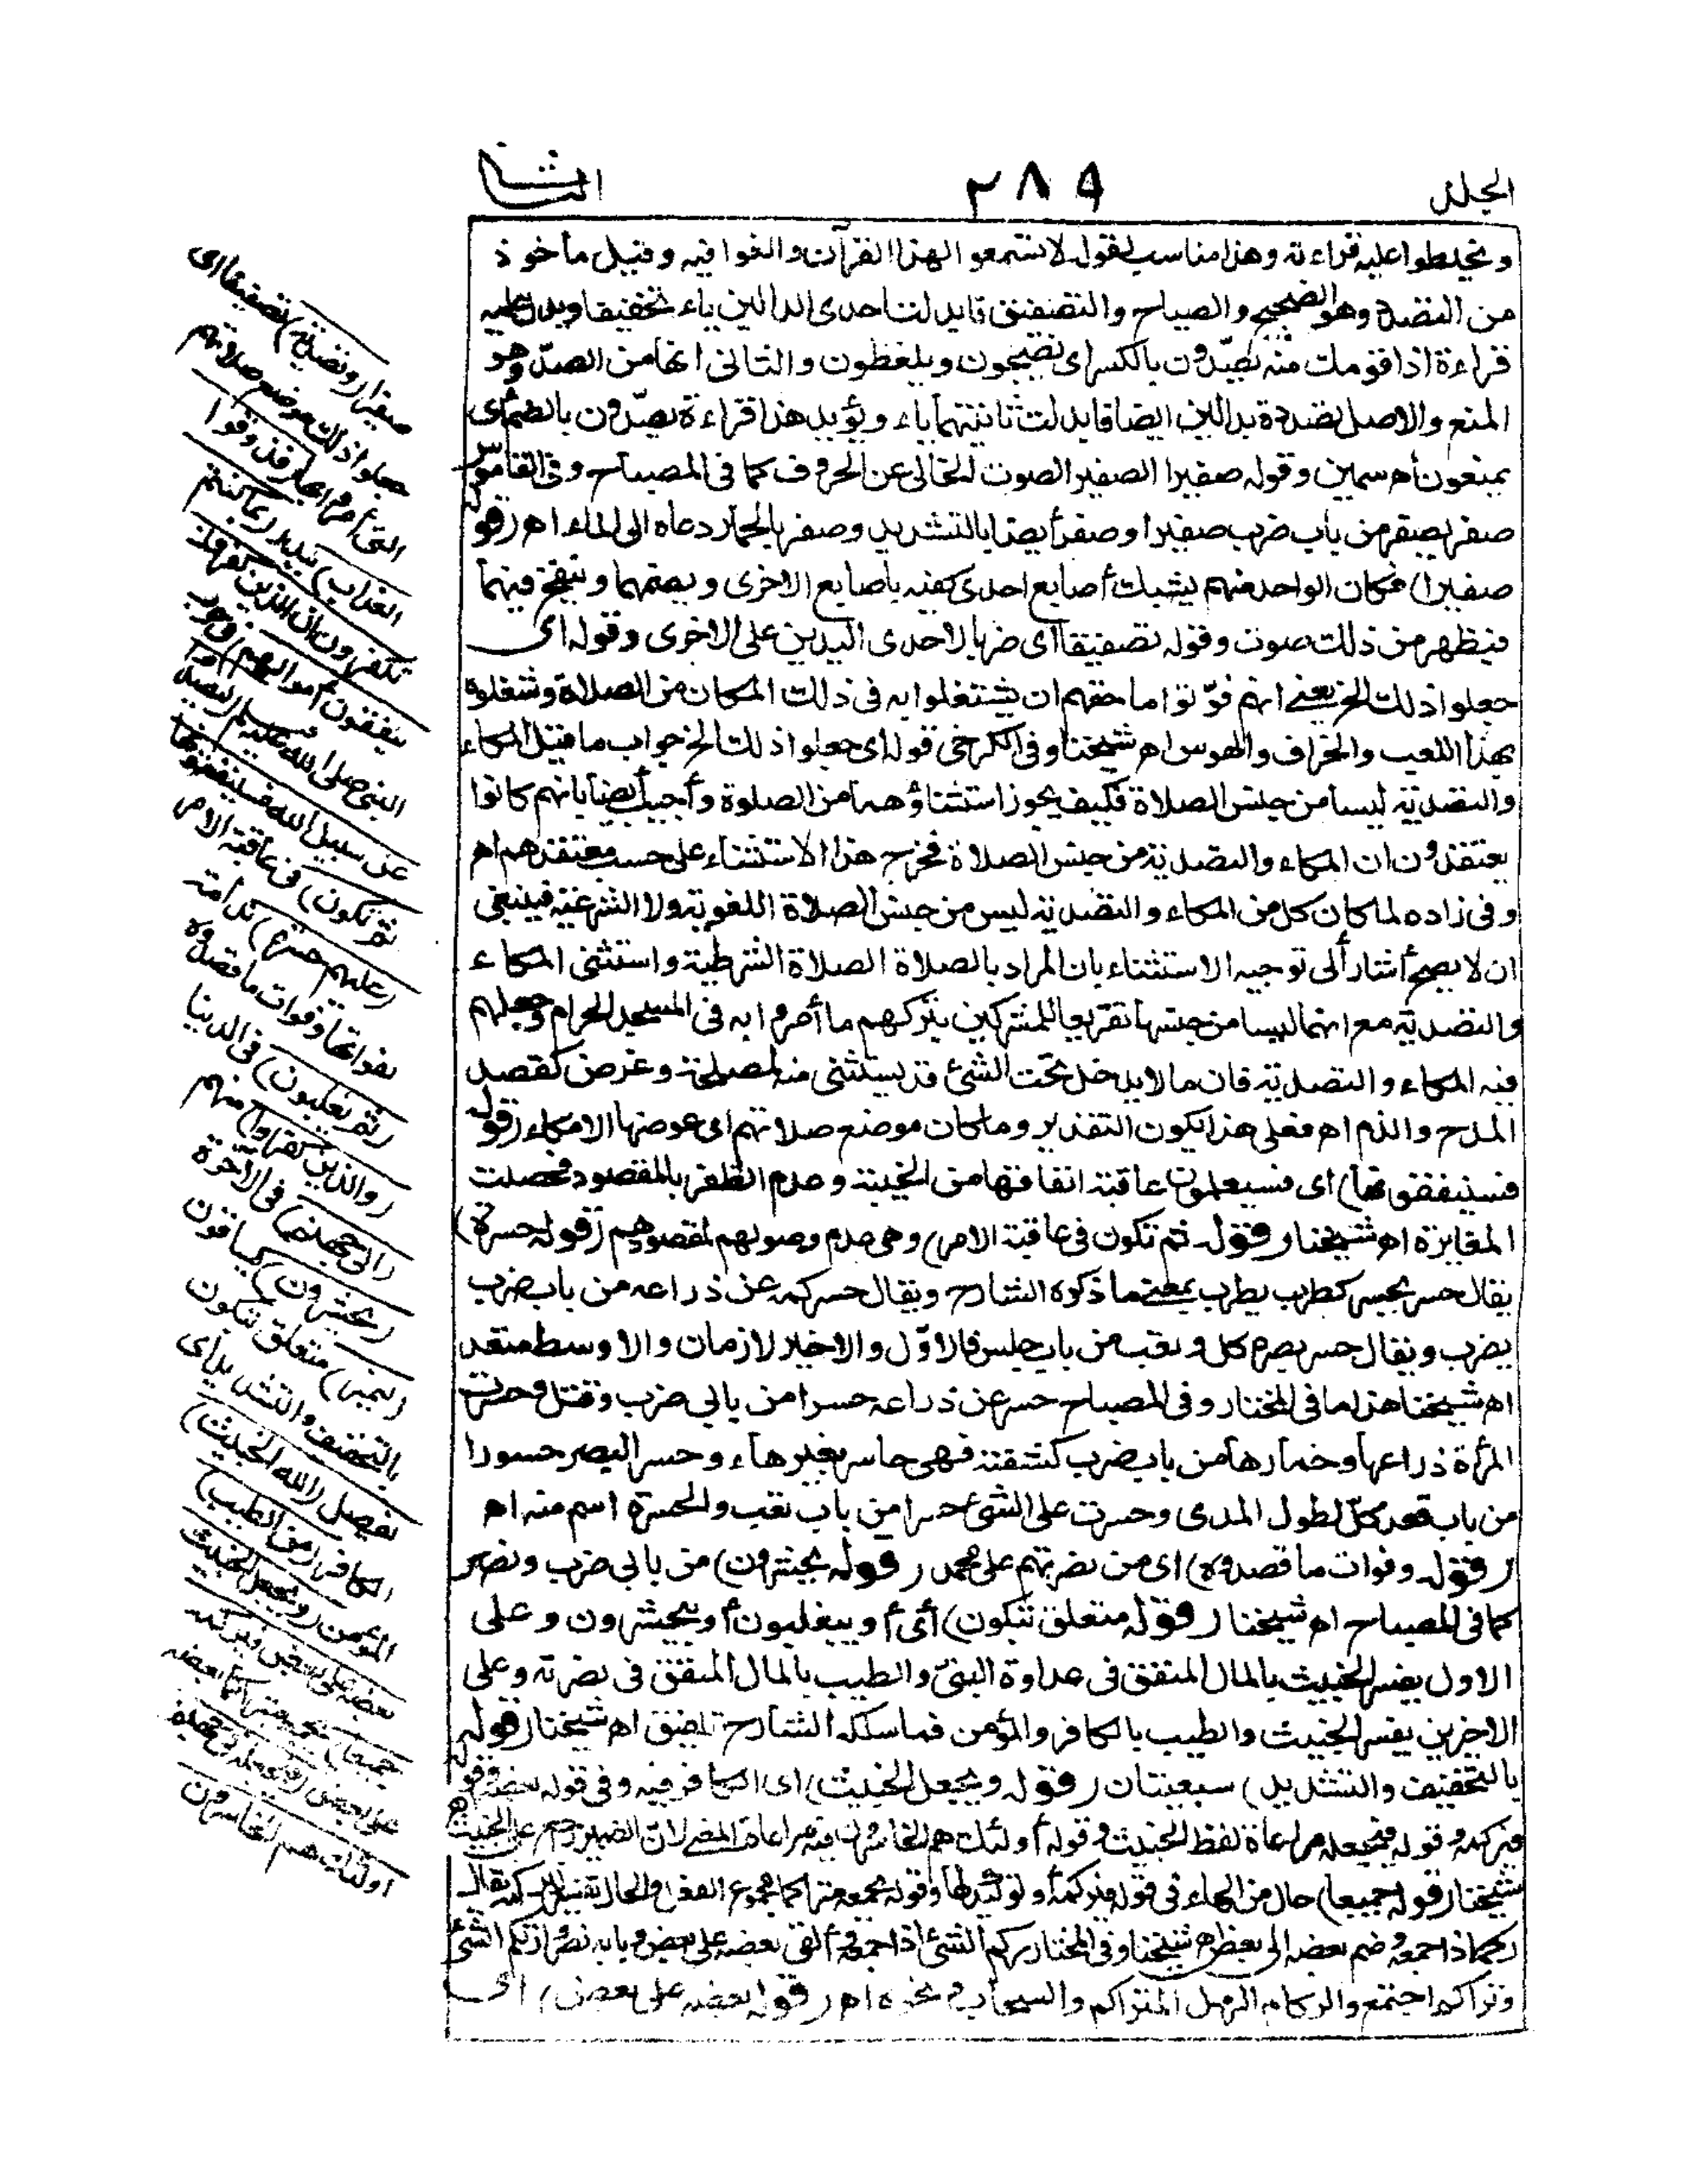 الجلد ٢٨٩ الثانى
ويخلطوا عليه قراءته وهذا مناسب لقوله لا تسمعوا لهذا القرآن والغوا فيه وقيل مأخوذ
من التصدد وهو الضجيج والصياح والتصفيق فأبدلت احدى الدالين ياء تخفيفا ويدل عليه
قراءة اذا قومك منه يصدون بالكسر اى يضجون ويلغطون والثانى انها من الصد وهو
المنع والاصل تصددة بدالين ايضا فأبدلت ثانيتهما ياء ويؤيد هذا قراءة يصدون بالضم أى
يمنعون أه سمين وقوله صفيرا الصفير الصوت الخالى عن الحروف كما فى المصباح وفى القاموس
صفر يصفر من باب ضرب صفيرا وصفر أيضا بالتشديد وصفر بالحمار دعاه الى الماء اه (قوله
صفيرا) فكان الواحد منهم يشبك أصابع احدى كفيه بأصابع الاخرى ويضمهما وينفخ فيهما
فيظهر من ذلك صوت وقوله تصفيقا أى ضربا لاحدى اليدين على الاخرى وقوله اى
جعلوا ذلك الخ يعنى انهم فوّتوا ما حقهم ان يشتغلوا به فى ذلك المكان من الصلاة وشغلوه
بهذا اللعب والخراف والهوس اه شيخنا وفى الكرخى قوله اى جعلوا ذلك الخ جواب ما قيل المكاء
والتصدية ليسا من جنس الصلاة فكيف يجوز استثناؤهما من الصلوة وأجيب أيضا بانهم كانوا
يعتقدون ان المكاء والتصدية من جنس الصلاة فخرج هذا الاستثناء على حسب معتقدهم اه
وفى زاده لما كان كل من المكاء والتصدية ليس من جنس الصلاة اللغوية ولا الشرعية فينبغى
ان لا يصح أشار ألى توجيه الاستثناء بان المراد بالصلاة الصلاة الشرطية واستثنى المكاء
والتصدية مع انهما ليسا من جنسها تقريعا للمشركين بتركهم ما أمروا به فى المسجد الحرام وجعلهم
فيه المكاء والتصدية فان ما لا يدخل تحت الشئ قد يستثنى منه لمصلحة وغرض كقصد
المدح والذم اه فعلى هذا يكون التقدير وما كان موضع صلاتهم اى عوضها الا مكاء (قوله
فسينفقونها) اى فسيعلمون عاقبة انفاقها من الخيبة وعدم الظفر بالمقصود فحصلت
المغايرة اه شيخنا (قوله ثم تكون فى عاقبة الامر) وهى عدم وصولهم لمقصودهم (قوله حسرة)
يقال حسر يحسر كطرب يطرب بمعنى ما ذكره الشارح ويقال حسر كمه عن ذراعه من باب ضرب
يضرب ويقال حسر بصره كل وتعب من باب جلس فالاوّل والاخير لازمان والاوسط متعد
اه شيخنا هذا ما فى المختار وفى المصباح حسر عن ذراعه حسرا من بابى ضرب وقتل وحسرت
المرأة ذراعها وخمارها من باب ضرب كشفته فهى حاسر بغير هاء وحسر البصر حسورا
من باب قعد كلّ لطول المدى وحسرت على الشئ حسرا من باب تعب والحسرة اسم منه اه
(قوله وفوات ما قصدوه) اى من نصرتهم على محمد (قوله يحشرون) من بابى ضرب ونصر
كما فى المصباح اه شيخنا (قوله متعلق بتكون) أى أو بيغلبون أو بيحشرون وعلى
الاول يفسر الخبيث بالمال المنفق فى عداوة النبىّ والطيب بالمال المنفق فى نصرته وعلى
الاخرين يفسر الخبيث والطيب بالكافر والمؤمن فما سلكه الشارح تلفيق اه شيخنا (قوله
بالتخفيف والتشديد) سبعيتان (قوله ويجعل الخبيث) اى الكافر فيه وفى قوله بعضه وقوله
فيركمه وقوله فيجعله مراعاة لفظ الخبيث وقوله أولئك هم الخاسرون فيه مراعاة المعنى لان الضمير راجع على الخبيث اه
شيخنا (قوله جميعا) حال من الهاء فى قوله فيركمه أو توكيد لها وقوله يجمعه متراكما يقال
ركمه اذا جمعه وضم بعضه الى بعض اه شيخنا وفى المختار ركم الشئ اذا جمعه وألقى بعضه على بعض وبابه نصر وارتكم الشئ
وتراكم اجتمع والركام الرمل المتراكم والسحاب ونحوه اه (قوله بعضه على بعض) اى
صفيرا (وتصدية) تصفيقا اى
جعلوا ذلك موضع صلاتهم
التى أمروا بها (فذوقوا
العذاب) ببدر (بما كنتم
تكفرون ان الذين كفروا
ينفقون أموالهم) فى حرب
النبى صلى الله عليه وسلم (ليصدوا
عن سبيل الله فسينفقونها
ثم تكون) فى عاقبة الامر
(عليهم حسرة) ندامة
لفواتها وفوات ما قصدوه
(ثم يغلبون) فى الدنيا
(والذين كفروا) منهم
(الى جهنم) فى الآخرة
(يحشرون) يساقون
(ليميز) متعلق بتكون
بالتخفيف والتشديد أى
يفصل (الله الخبيث)
الكافر (من الطيب)
المؤمن (ويجعل الخبيث
بعضه على بعض فيركمه
جميعا) يجمعه متراكما بعضه
على بعض (فيجعله فى جهنم
اولئك هم الخاسرون